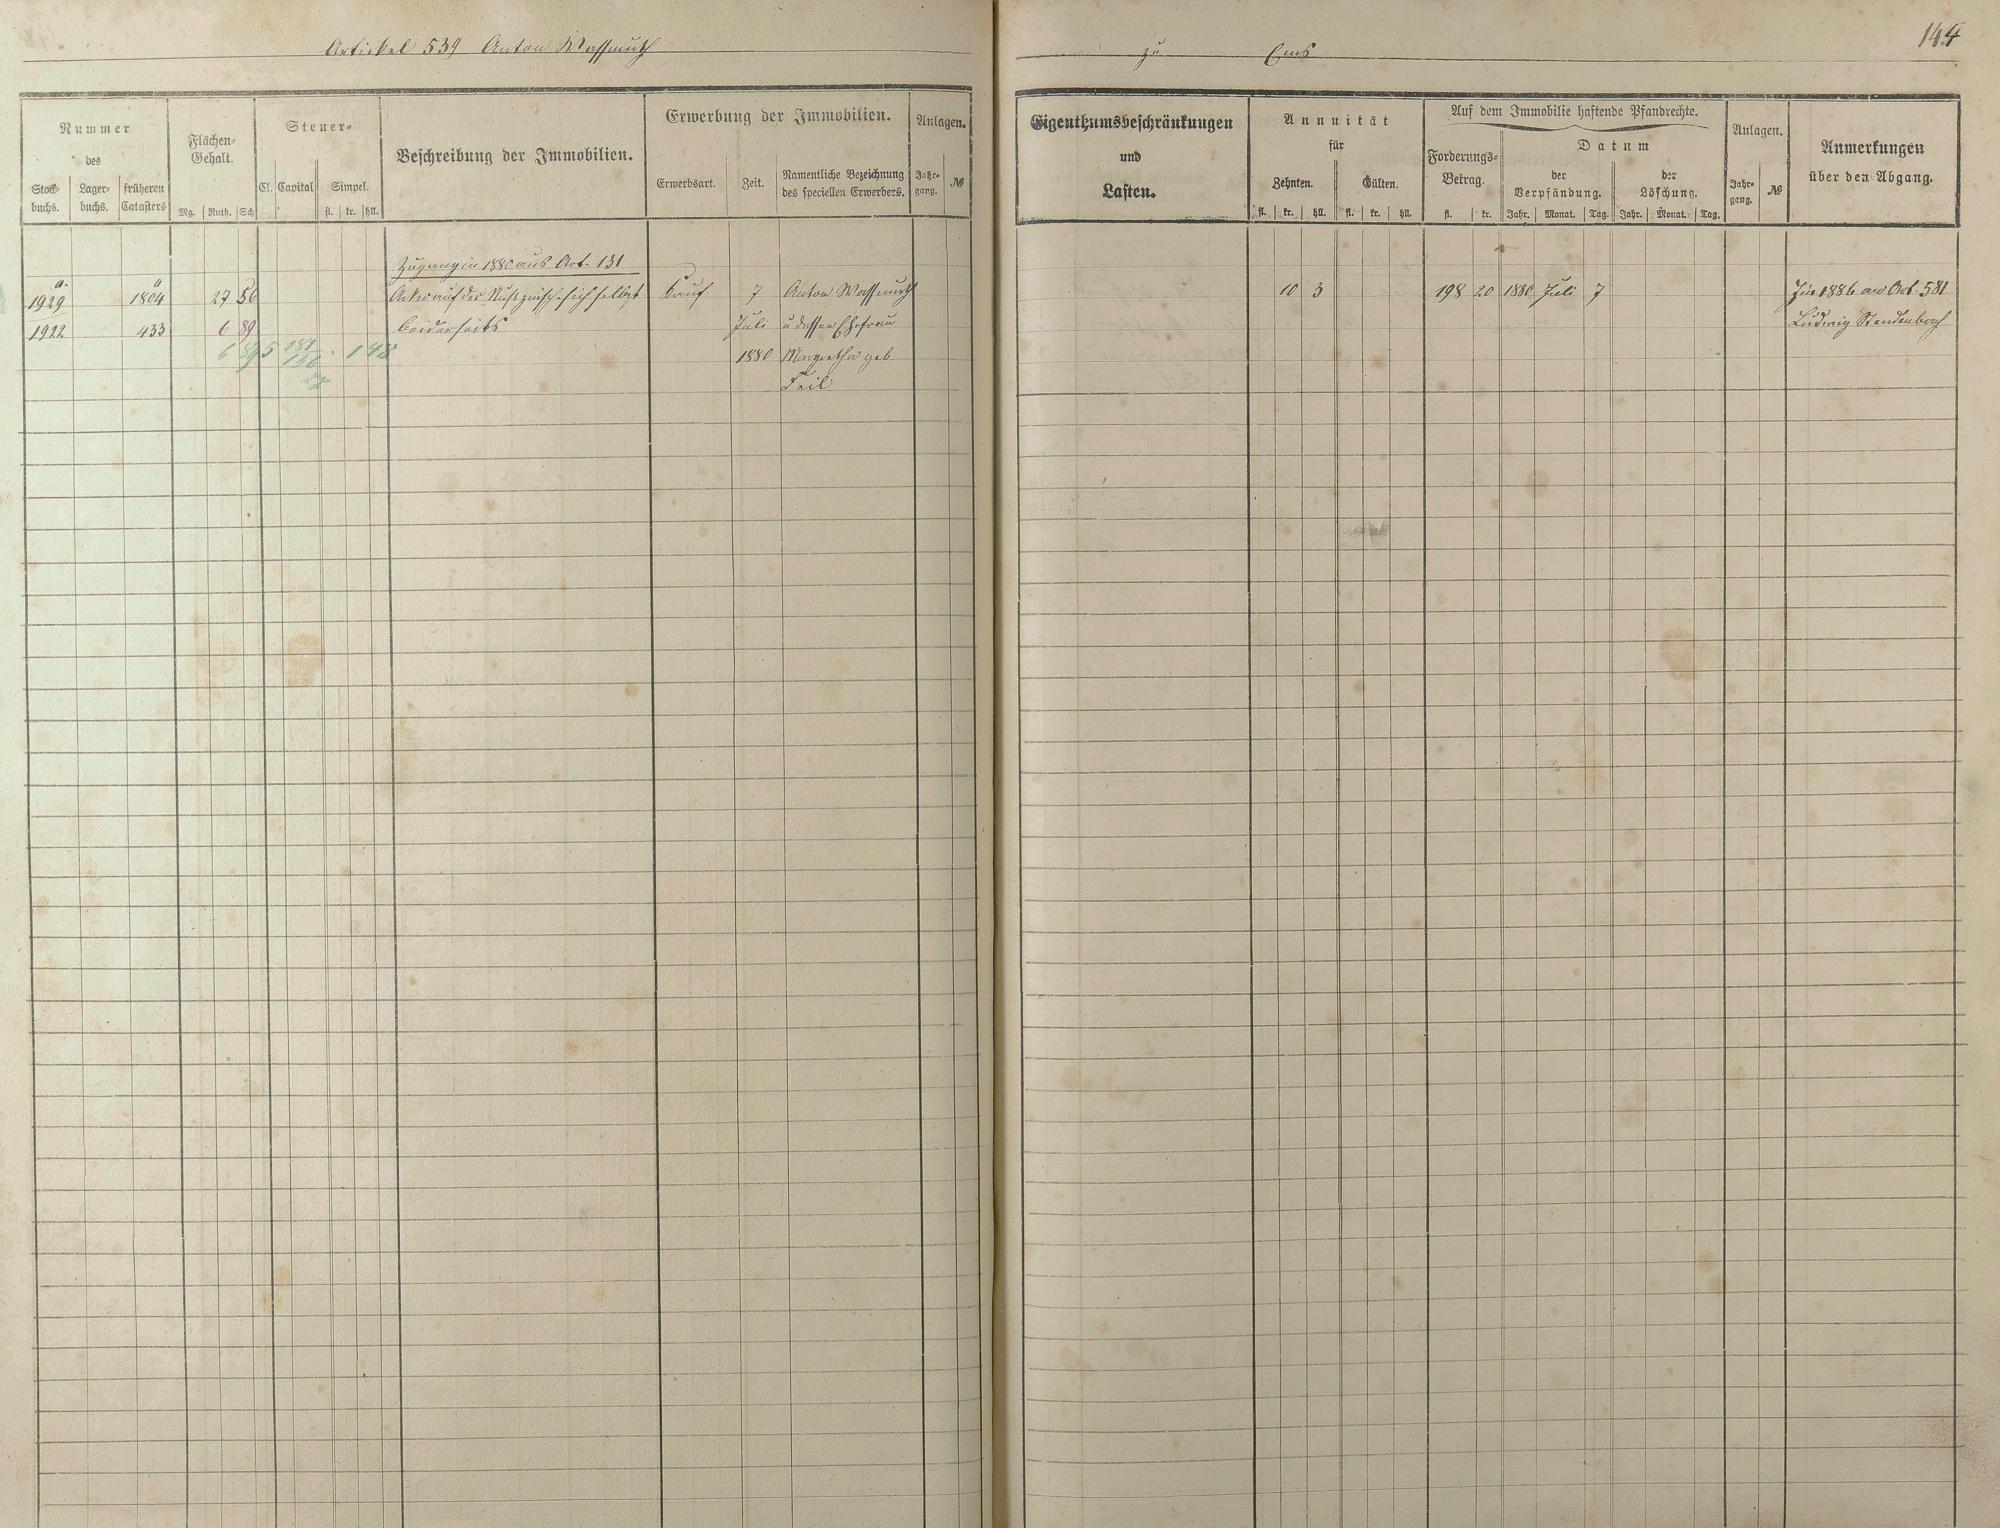 Artickel 539 Anton Wassmuth
zu Ems
144
Nummer
des
Stock-
buchs.
Lager-
buchs.
früheren
Catasters
Flächen-
Gehalt.
Mg. Ruth. Sch
Steuer-
Cl. Capital Simpel.
fl. kr. hll.
Beschreibung der Immobilien.
Erwerbung der Immobilien.
Erwerbsart. Zeit.
Namentliche Bezeichnung
des speciellen Erwerbers.
Anlagen.
Jahr-
gang.
№
Eigenthumsbeschränkungen
und
Lasten.
Annuität
für
Zehnten. Gülten.
fl. kr. hll. fl. kr. hll.
Auf dem Immobilie haftende Pfandrechte.
Forderungs-
Betrag.
fl. kr.
Datum
der
Verpfändung.
der
Löschung.
Jahr. Monat. Tag. Jahr. Monat. Tag.
Anlagen.
Jahr-
gang.
№
Anmerkungen
über den Abgang.
Zugang in 1880 aus Art. 131
a. a
1929 1804 27 56 Acker auf der sich selbst Kauf 7 Anton Wassmuth 10 3 198 20 1880 Juli 7 1886 an Art. 581
1922 433 6 89 beiderseits Juli u dessen Ehefrau Ludwig
6 89 5 181 1 48 1880 Margretha geb
156
Feil